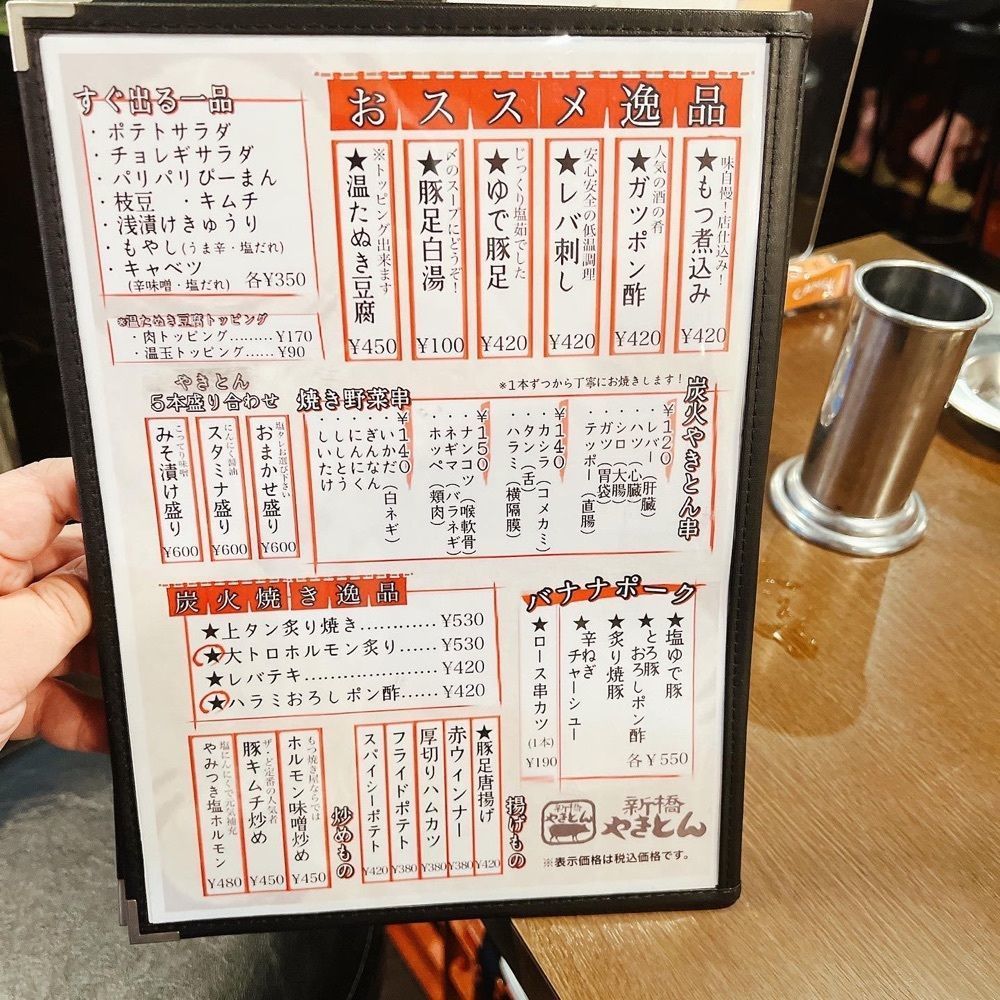 すぐ出る一品
・ポテトサラダ
・チョレギサラダ
・パリパリぴーまん
・枝豆 ・キムチ
・浅漬けきゅうり
・もやし(うま辛・塩だれ)
・キャベツ
(辛味噌・塩だれ) 各¥350
※温たぬき豆腐トッピング
・肉トッピング………¥170
・温玉トッピング……¥90
おススメ逸品
味自慢!店仕込み!
★もつ煮込み
¥420
人気の酒の肴
★ガツポン酢
¥420
安心安全の低温調理
★レバ刺し
¥420
じっくり塩茹でした
★ゆで豚足
¥420
〆のスープにどうぞ!
★豚足白湯
¥100
※トッピング出来ます
★温たぬき豆腐
¥450
やきとん
5本盛り合わせ
塩タレお選び下さい
おまかせ盛り
¥600
にんにく醤油
スタミナ盛り
¥600
こってり味噌
みそ漬け盛り
¥600
※1本ずつから丁寧にお焼きします!
炭火やきとん串
¥120
・レバー(肝臓)
・ハツ(心臓)
・シロ(大腸)
・ガツ(胃袋)
・テッポー(直腸)
¥140
・カシラ(コメカミ)
・タン(舌)
・ハラミ(横隔膜)
¥150
・ナンコツ(喉軟骨)
・ネギマ(バラネギ)
・ホッペ(頬肉)
焼き野菜串
¥140
・いかだ(白ネギ)
・ぎんなん
・にんにく
・ししとう
・しいたけ
炭火焼き逸品
★上タン炙り焼き…………¥530
★大トロホルモン炙り……¥530
★レバテキ…………………¥420
★ハラミおろしポン酢……¥420
バナナポーク
★塩ゆで豚
★とろ豚
おろしポン酢
★炙り焼豚
★辛ねぎ
チャーシュー
各¥550
★ロース串カツ
(1本)
¥190
揚げもの
★豚足唐揚げ
¥420
赤ウインナー
¥380
厚切りハムカツ
¥380
フライドポテト
¥380
スパイシーポテト
¥420
炒めもの
もつ焼き屋ならでは
ホルモン味噌炒め
¥450
ザ・ど定番の人気者
豚キムチ炒め
¥450
塩にんにくで元気補充
やみつき塩ホルモン
¥480
新橋
やきとん
新橋
やきとん
※表示価格は税込価格です。